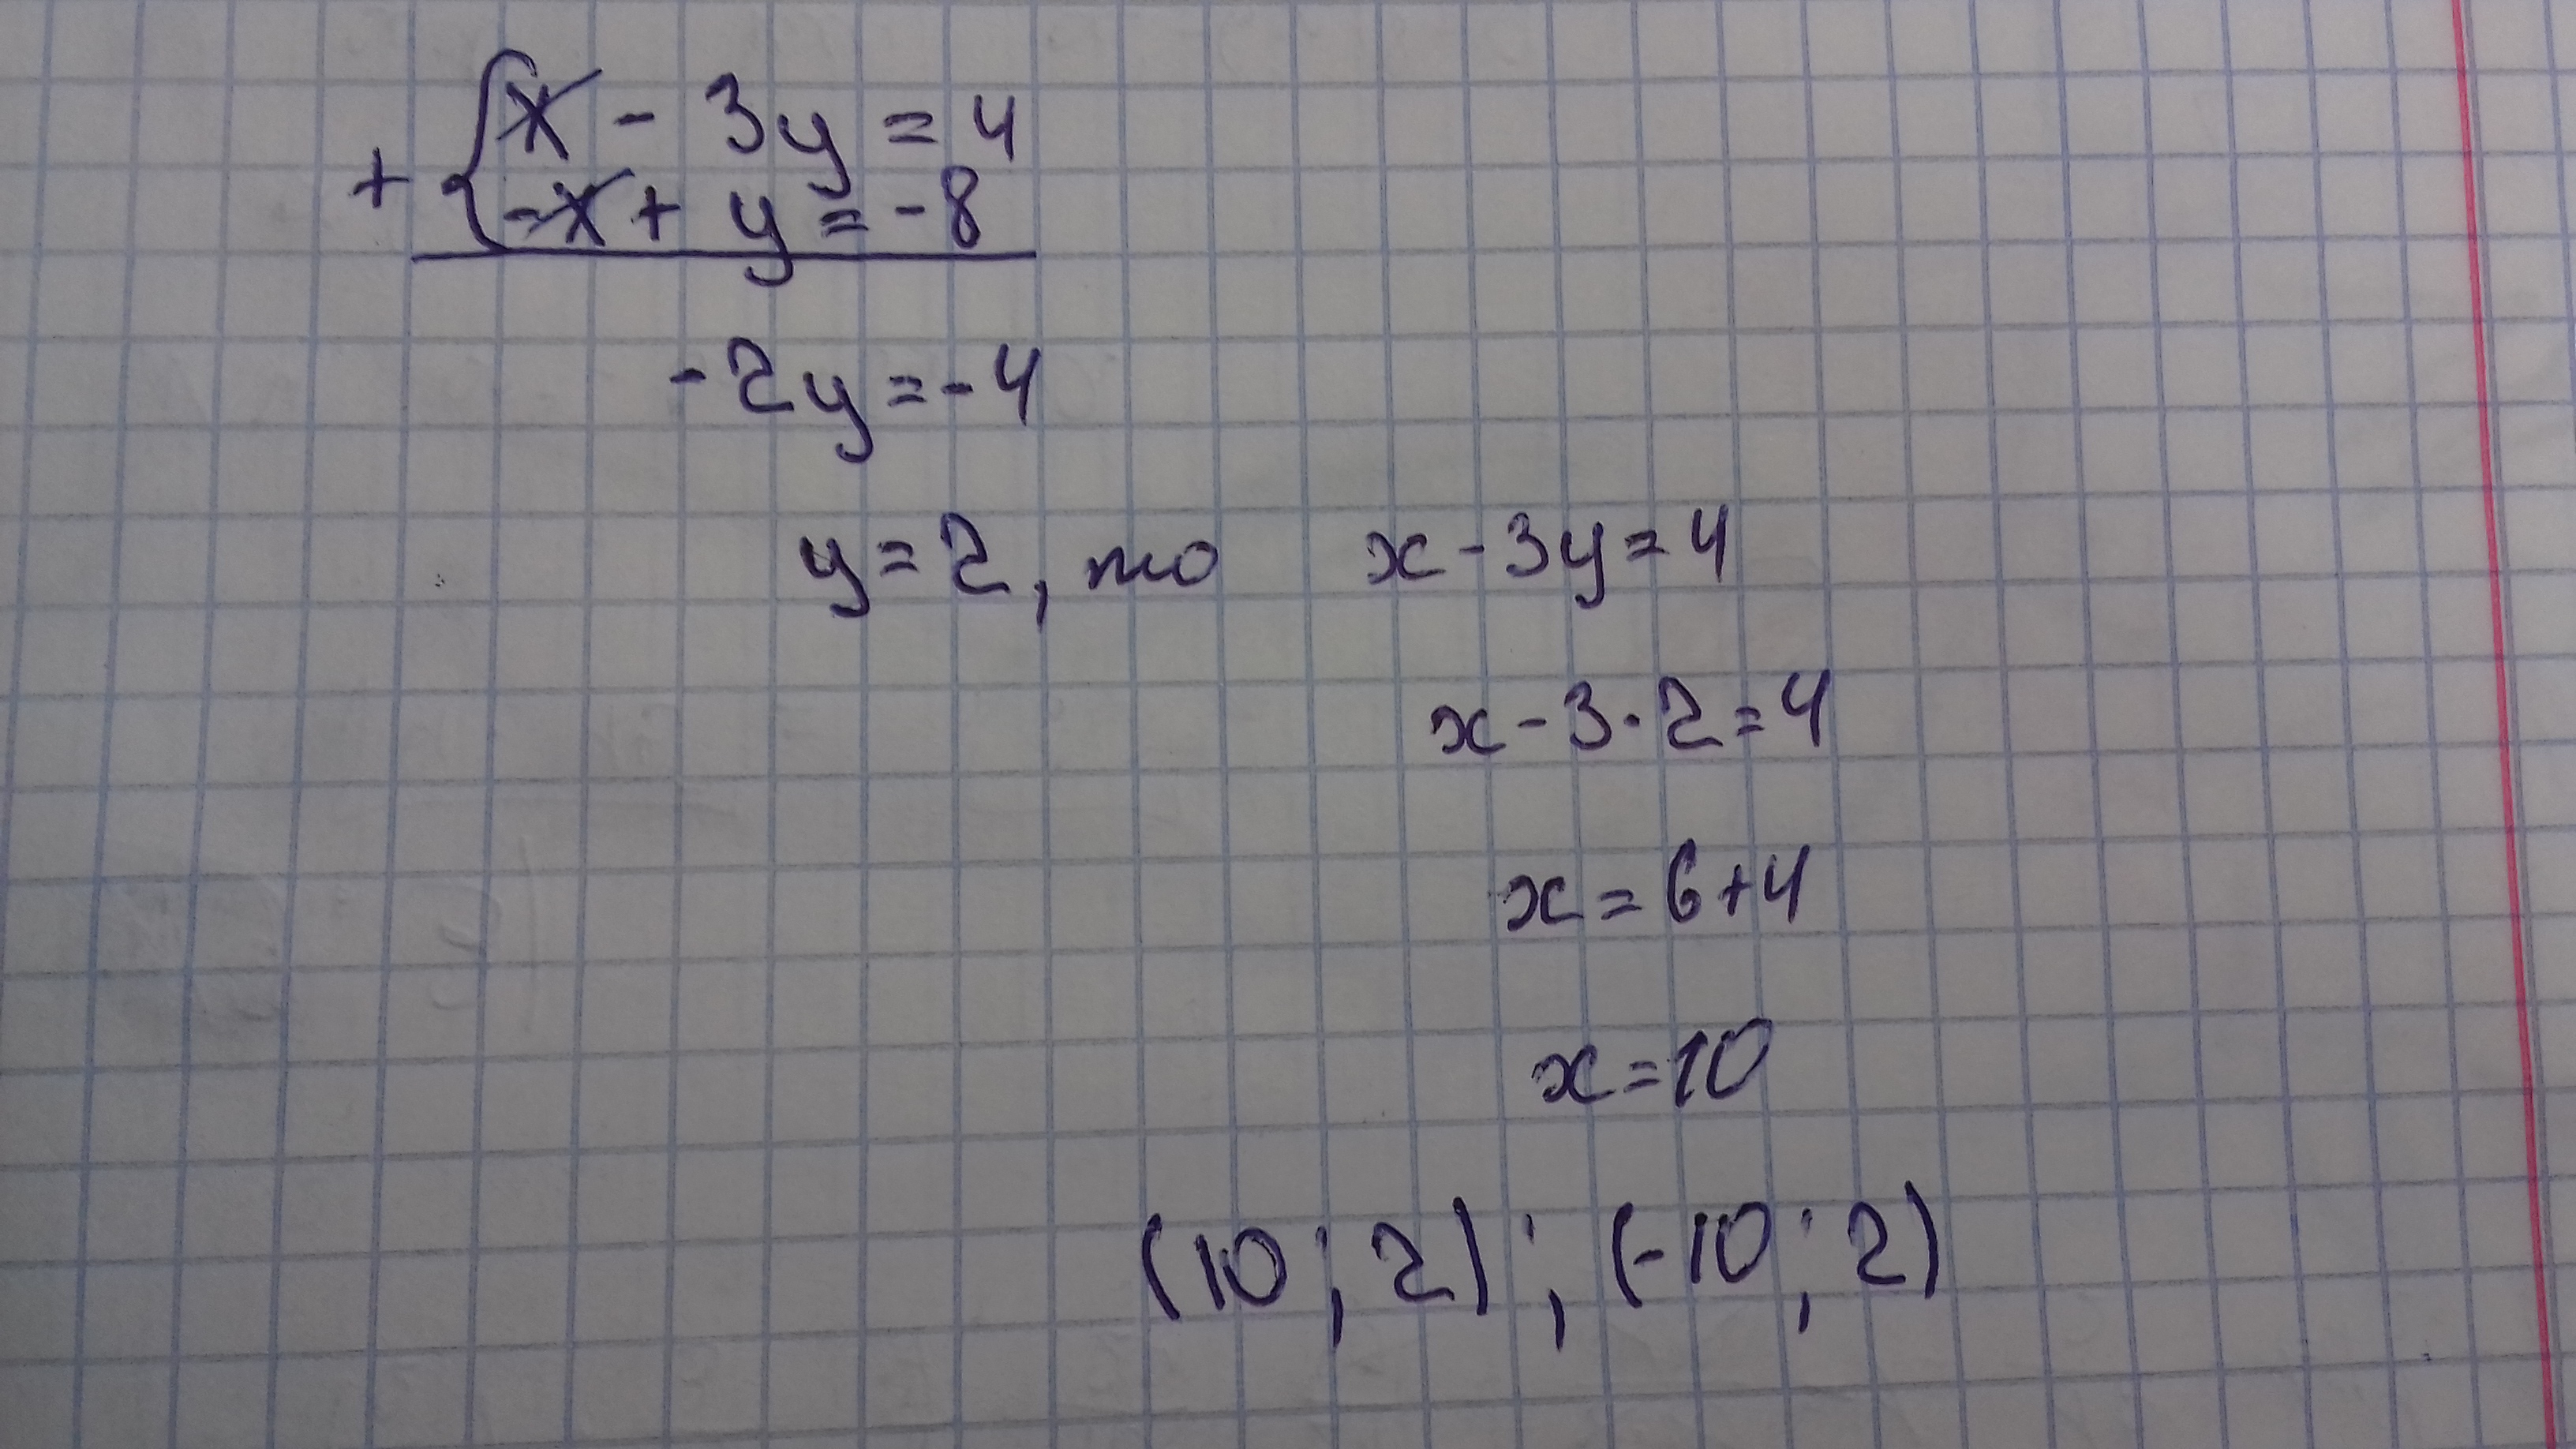 + { x - 3y = 4
-x + y = -8
-2y = -4
y = 2, то x - 3y = 4
x - 3 · 2 = 4
x = 6 + 4
x = 10
(10 ; 2) ; (-10 ; 2)